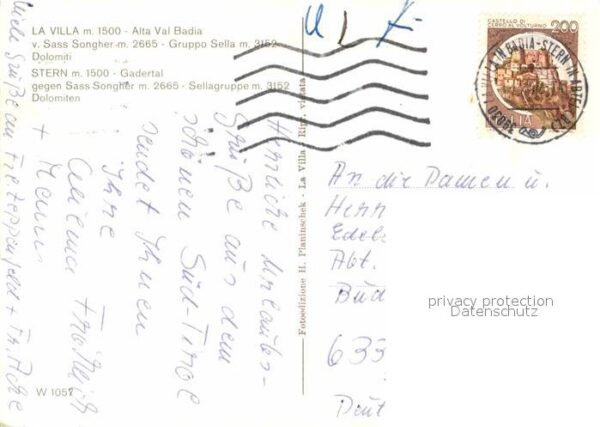 LA VILLA m. 1500 - Alta Val Badia
v. Sass Songher m. 2665 - Gruppo Sella m. 3152
Dolomiti
STERN m. 1500 - Gadertal
gegen Sass Songher m. 2665 - Sellagruppe m. 3152
Dolomiten
CASTELLO DI
CERRO AL VOLTURNO
200
LA VILLA IN BADIA - STERN IN ABTEI
39030
Herrliche Urlaubs-
grüße aus dem
schönen Süd-Tirol
sendet Ihnen
Ihre
+ Mann
Viele Grüße an
Fotoedizione H. Planinschek - La Villa - Ripr. vietata
An die Damen u.
Herr
Edels
Abt.
Büd
633
Deut
privacy protection
Datenschutz
W 1057